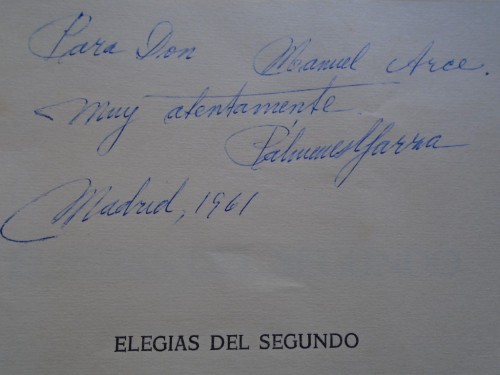 Para Don Manuel Arce.
Muy atentamente
Madrid, 1961
ELEGIAS DEL SEGUNDO